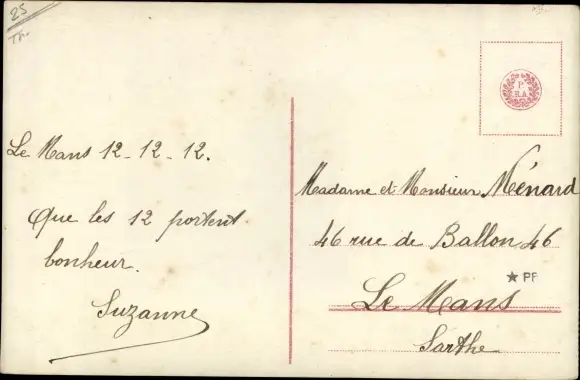 25
Le Mans 12-12-12.
Que les 12 portent
bonheur.
Suzanne
P.
R.A.
Madame et Monsieur Ménard
46 rue de Ballon 46
★ PF
Le Mans
Sarthe